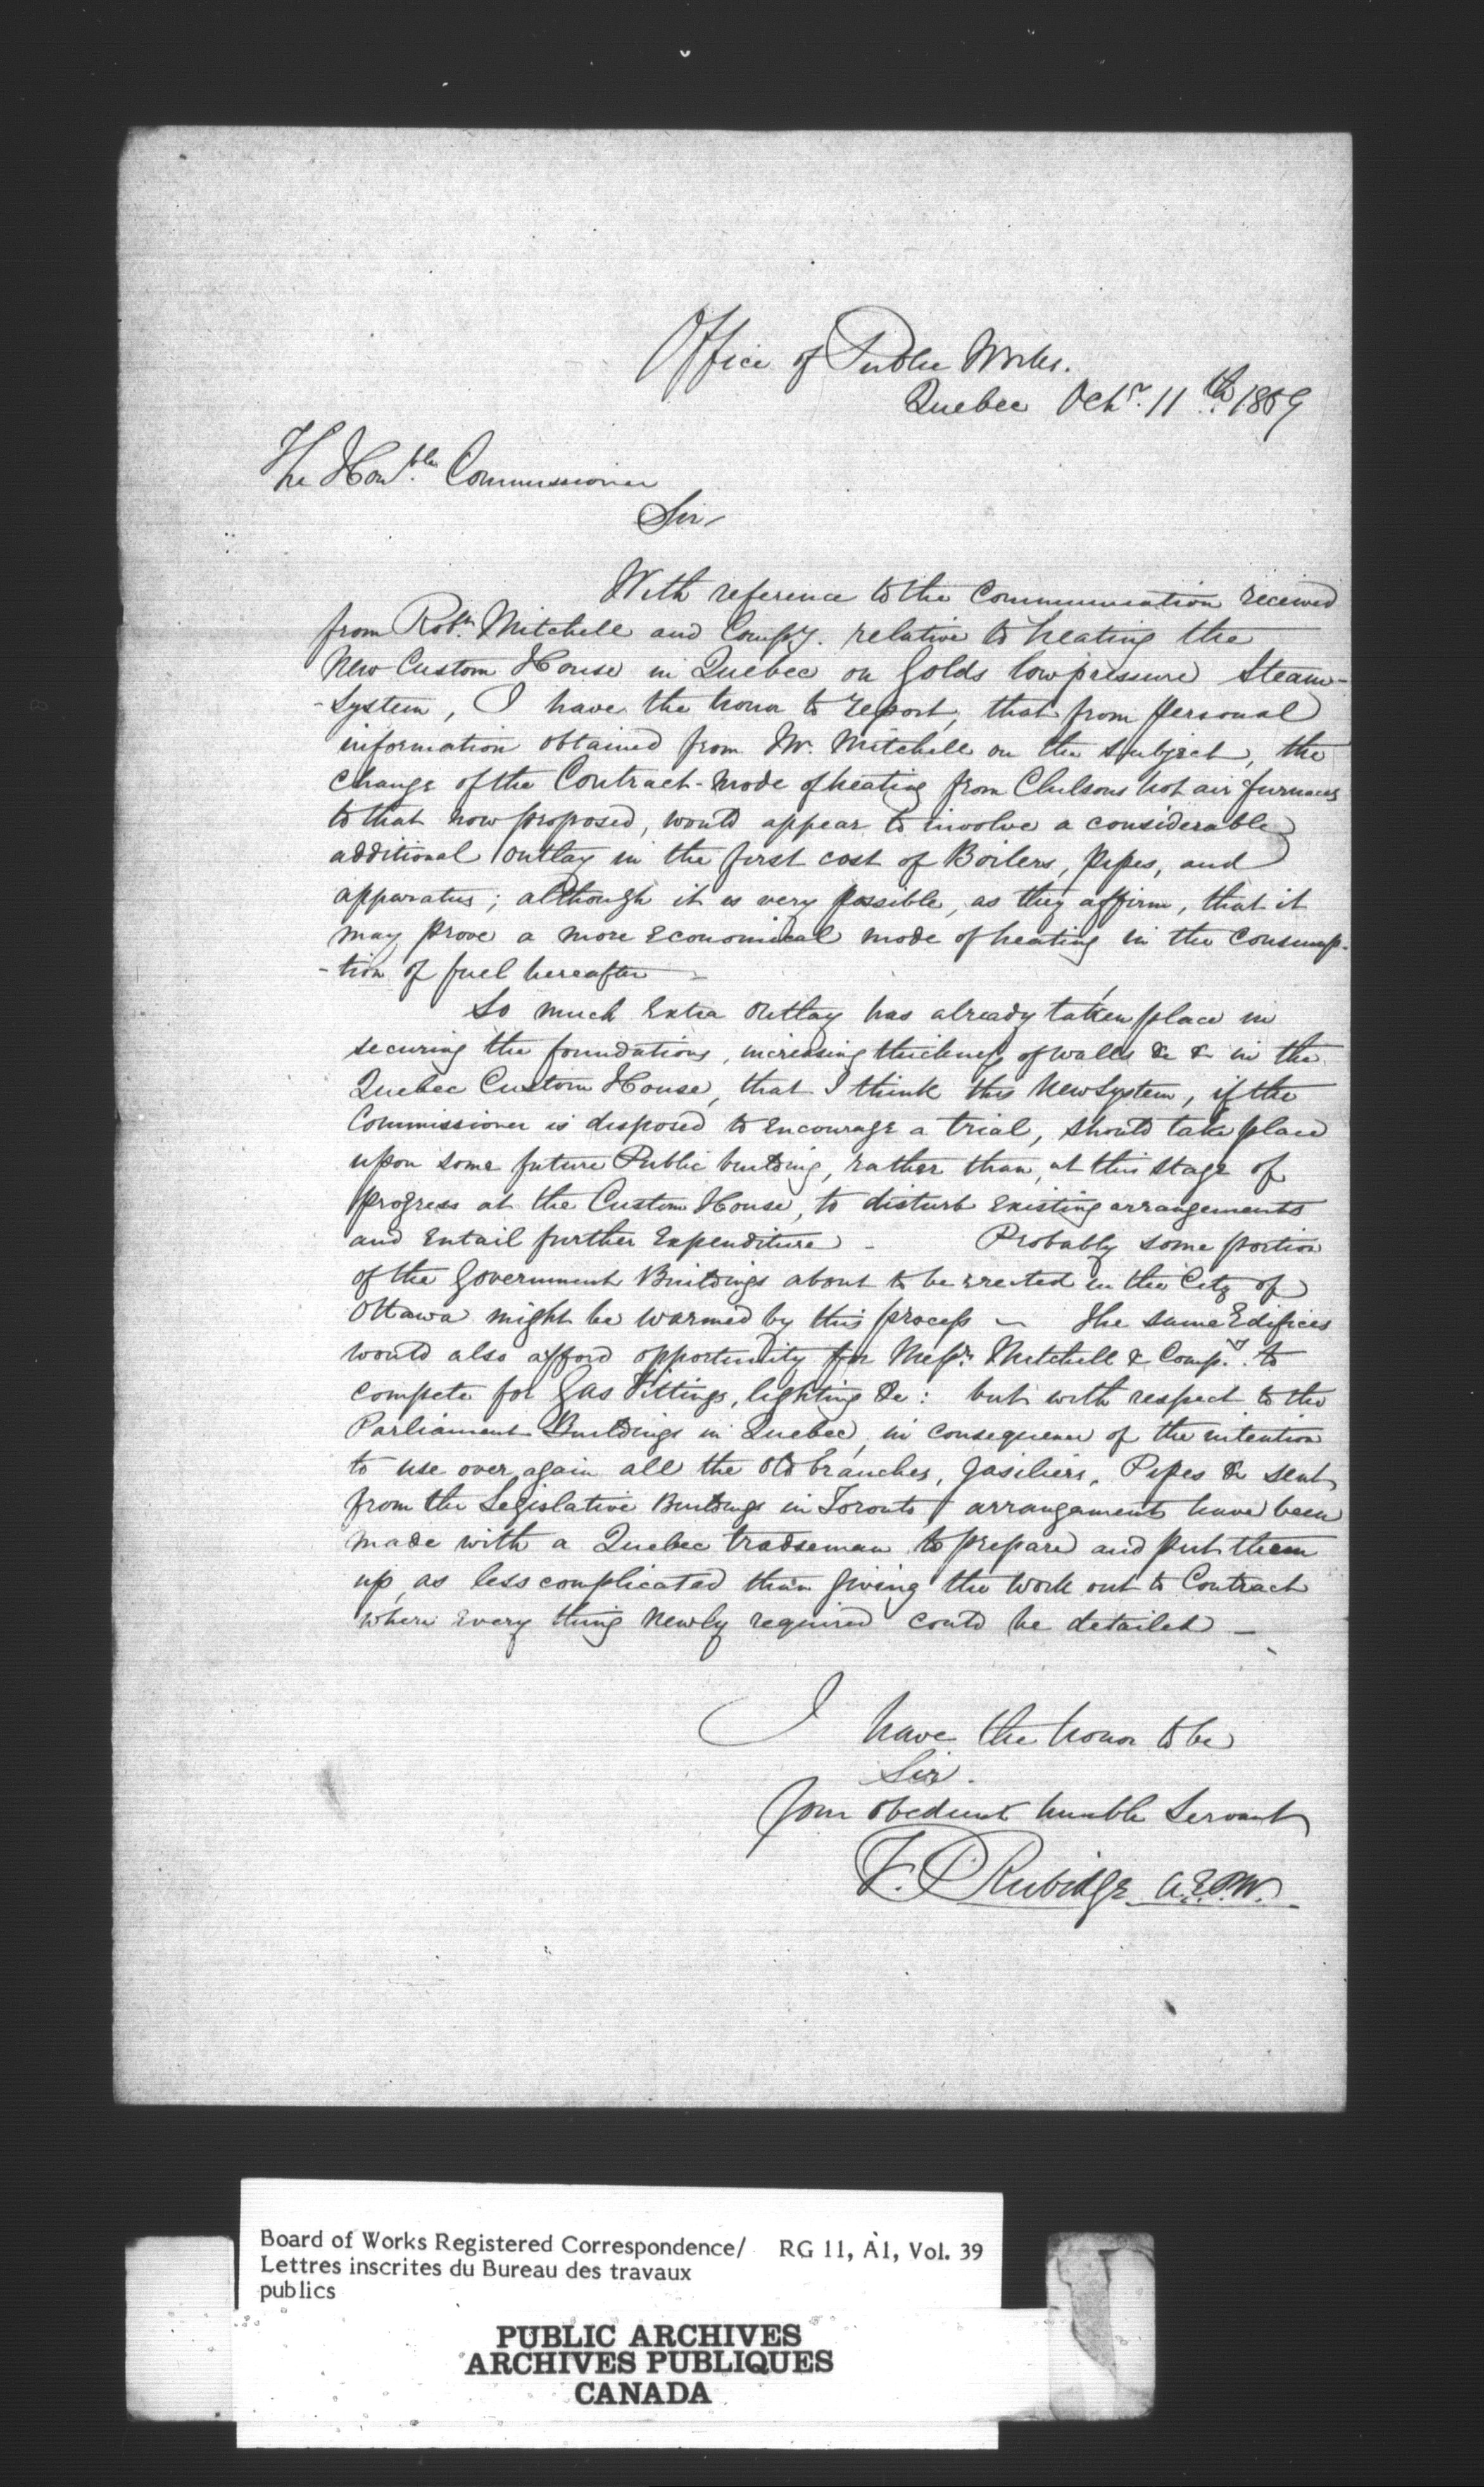 Office of Public Works.
Quebec Octr. 11th. 1859
The Honble. Commissioner
Sir,
With reference to the Communication received
from Robt. Mitchell and Compy. relative to heating the
New Custom House in Quebec on Golds low pressure Steam-
-System, I have the honor to report, that from personal
information obtained from Mr. Mitchell on the subject, the
change of the Contract-mode of heating from Chilsons hot air furnaces
to that now proposed, would appear to involve a considerable
additional outlay in the first cost of Boilers, pipes, and
apparatus; although it is very possible, as they affirm, that it
may prove a more economical mode of heating in the consump-
-tion of fuel hereafter -
So much extra outlay has already taken place in
securing the foundations, increasing thickness of walls &c &c in the
Quebec Custom House, that I think this New System, if the
Commissioner is disposed to encourage a trial, should take place
upon some future Public building, rather than, at this stage of
progress at the Custom House, to disturb existing arrangements
and entail further expenditure - Probably some portion
of the Government Buildings about to be erected in the City of
Ottawa might be warmed by this process - The same Edifices
would also afford opportunity for Messrs. Mitchell & Compy. to
compete for Gas fittings, lighting &c: but with respect to the
Parliament Buildings in Quebec, in consequence of the intention
to use over again all the old branches, gasiliers, Pipes &c sent
from the Legislative Buildings in Toronto, arrangements have been
made with a Quebec tradseman to prepare and put them
up, as less complicated than giving the work out to Contract
where every thing newly required could be detailed -
I have the honor to be
Sir.
Your obedient humble Servant
F. P. Rubidge A.E.P.W.
Board of Works Registered Correspondence/ RG 11, A1, Vol. 39
Lettres inscrites du Bureau des travaux
publics
PUBLIC ARCHIVES
ARCHIVES PUBLIQUES
CANADA